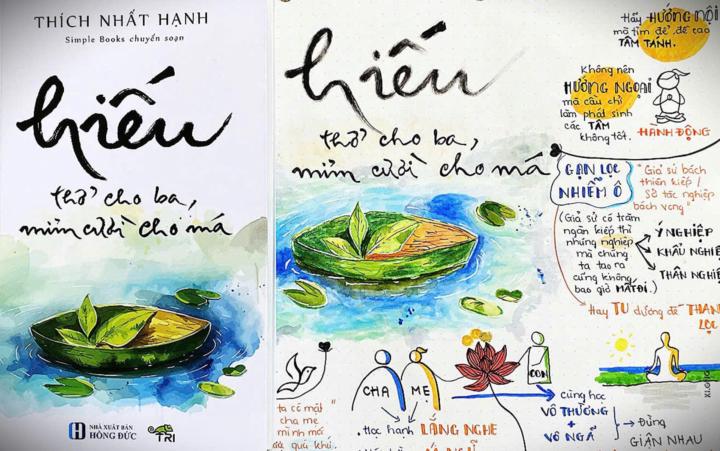 THÍCH NHẤT HẠNH
Simple Books chuyển soạn
hiếu
thở cho ba,
mỉm cười cho má
NHÀ XUẤT BẢN
HỒNG ĐỨC
TRI
hiếu
thở cho ba,
mỉm cười cho má
Hãy HƯỚNG NỘI
mà tìm để, đề cao
TÂM TÁNH.
Không nên
HƯỚNG NGOẠI
mà cầu chỉ
làm phát sinh
các TÂM
không tốt.
HÀNH ĐỘNG
GẠN LỌC
NHIỄM Ô
"Giả sử bách
thiên kiếp /
Sở tác nghiệp
bách vong"
(Giả sử có trăm
ngàn kiếp thì
những nghiệp
mà chúng
ta tạo ra
cũng không
bao giờ MẤT ĐI.)
Ý NGHIỆP
KHẨU NGHIỆP
THÂN NGHIỆP
Hãy TU dưỡng để THANH
LỌC
CHA
MẸ
CON
ta có mặt
cha mẹ
mình mà
quá khứ
Học hạnh LẮNG NGHE
cùng học
VÔ THƯỜNG
+
VÔ NGÃ
Đừng
GIẬN NHAU